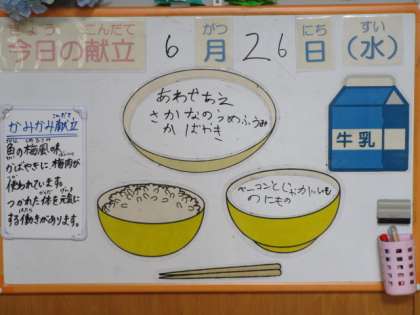 きょう こんだて
今日の献立
6
がつ
月
26
にち
日
すい
(水)
あわせちえ
さかなのうめふうみ
かばやき
牛乳
かみかみ献立
魚の梅風味
かばやきに梅肉が
使われています。
つかれた体を元気に
する働きがあります。
ベーコンとじゃがいもの
のにもの